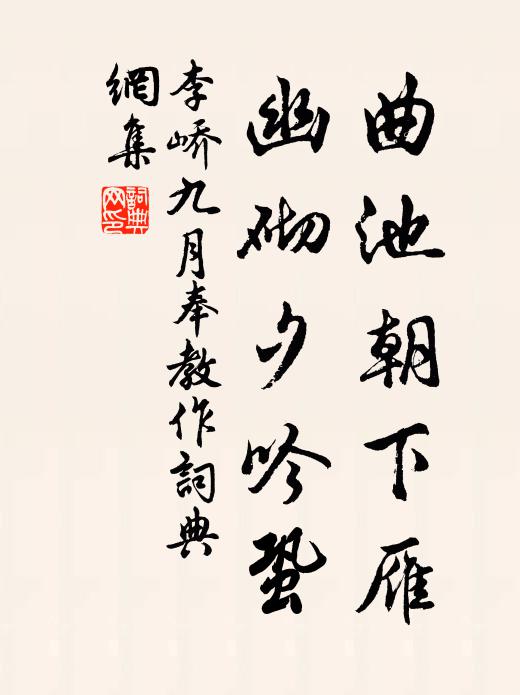 曲池朝下雁
幽砌夕吟蛩
李嶠九月奉教作詞典
網集
詞典網印